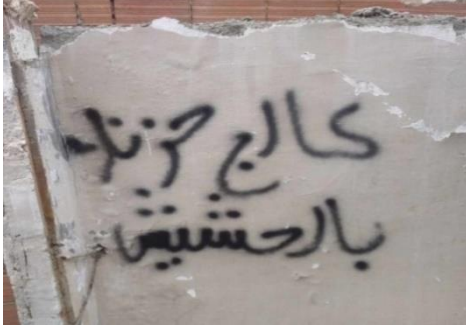 عالج حزنك
بالحشيش